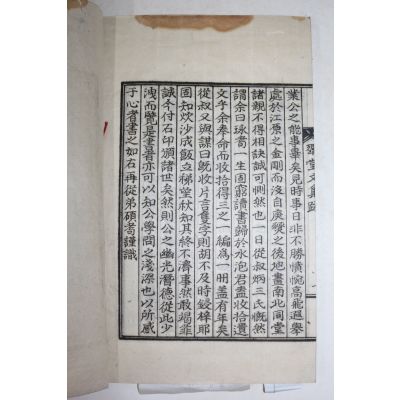 業公之能事畢矣見時事日非不勝憤惋高飛遐舉
處於江原之金剛而沒自庚變之後地畫南北同堂
諸親不得相訣誠可惻然也一日從叔炳三氏慨然
謂余曰琢奇一生固窮讀書歸於水泡君盍收拾遺
文乎余奉命而收拾得三之一編為一冊蓋有年矣
從叔又與謀曰旣收片言隻字則胡不及時鋟梓耶
固知炊沙成飯立稊望秋知其終不濟事然敢竭菲
誠今付石印頒諸世矣然則公之幽光潛德從此少
洩而覽是書者亦可以知公學問之淺深也以所感
于心者書之如右再從弟碩耆謹識
堂文集跋